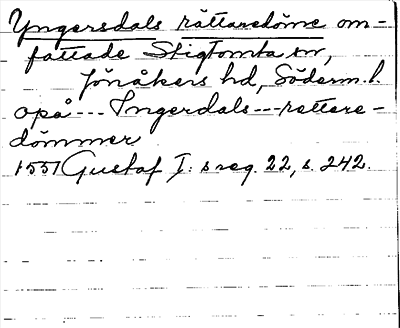 Yngersdals rättaredöme om-
fattade Stigtomta sn,
Jönåkers hd, Söderm. l.
opå --- Ingerdals --- rettere-
dömmer
1551 Gustaf I: s reg. 22, s. 242.